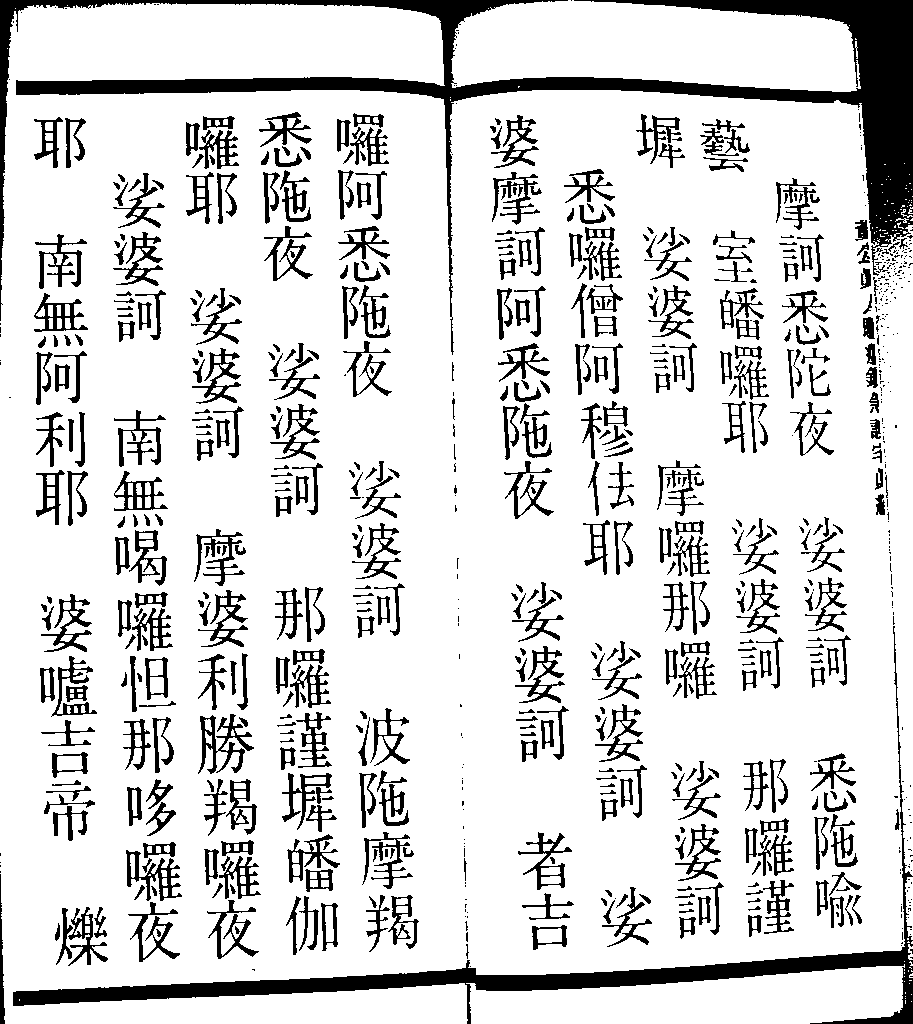 摩訶悉陀夜　娑婆訶　悉陁喻
藝　室皤囉耶　娑婆訶　那囉謹
墀　娑婆訶　摩囉那囉　娑婆訶
悉囉僧阿穆佉耶　娑婆訶　娑
婆摩訶阿悉陁夜　娑婆訶　者吉
囉阿悉陁夜　娑婆訶　波陁摩羯
悉陁夜　娑婆訶　那囉謹墀皤伽
囉耶　娑婆訶　摩婆利勝羯囉夜
娑婆訶　南無喝囉怛那哆囉夜
耶　南無阿利耶　婆嚧吉帝　爍